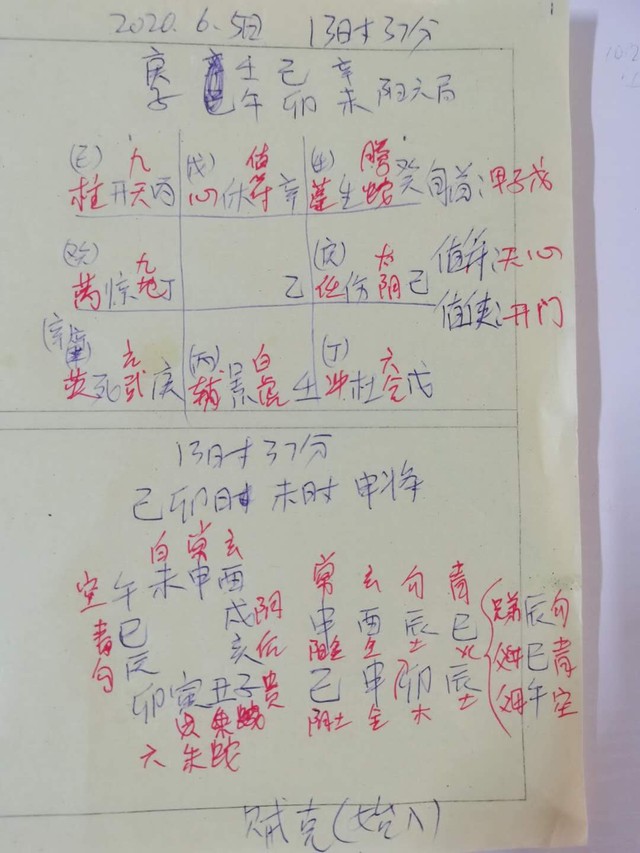 2020.6.5日 13时37分
庚 壬 己 辛
子 午 卯 未 阳六局
(己) 九 (戊) 值 (壬) 腾
柱开天丙 心休符辛 蓬生蛇癸 旬首:甲子戊
(癸) 九 (庚) 太 值符:天心
芮惊地丁 乙 任伤阴己 值使:开门
玄 (丙) 白 (丁) 六
英死武庚 辅景虎壬 冲杜合戊
13时37分
己卯日 未时 申将
白 常 玄
空 午 未 申 酉 常 玄 勾 青
青 巳 戌 阴 申 酉 辰 巳 兄弟辰勾
勾 辰 亥 后 金 土 火 父母巳青
卯 寅 丑 子 贵 己 申 卯 辰 父母午空
朱 蛇 阴土 金 木 土
六 朱 蛇
贼克(始入)